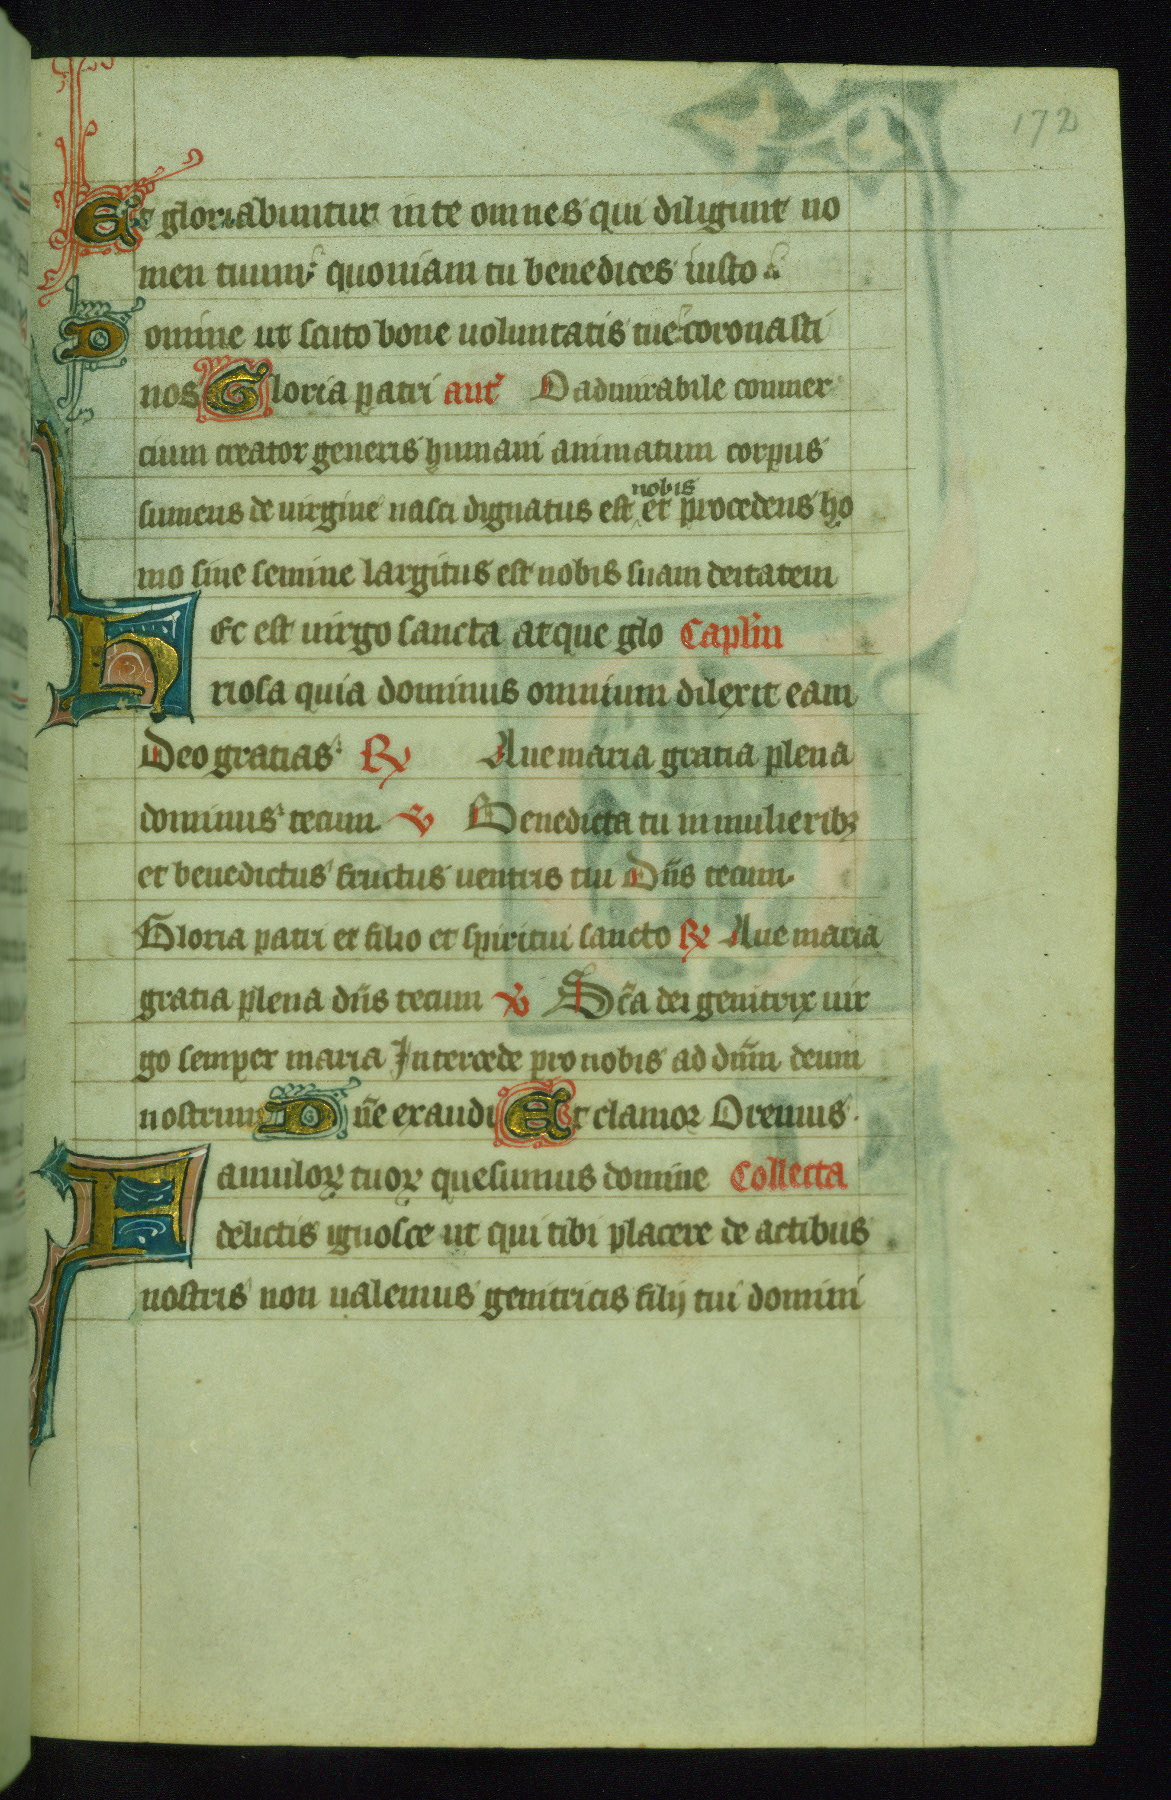 172
Et gloriabuntur in te omnes qui diligunt no
men tuum quoniam tu benedices iusto
Domine ut scuto bone uoluntatis tue coronasti
nos Gloria patri ant O admirabile commer
cium creator generis humani animatum corpus
nobis
sumens de uirgine nasci dignatus est et procedens ho
mo sine semine largitus est nobis suam deitatem
Hec est uirgo sancta atque glo Caplm
riosa quia dominus omnium dilexit eam
Deo gratias ℟ Aue maria gratia plena
dominus tecum ℣ Benedicta tu in mulieribꝫ
et benedictus fructus uentris tui Dn̄s tecum
Gloria patri et filio et spiritui sancto ℟ Aue maria
gratia plena dn̄s tecum ℣ Sc̄a dei genitrix uir
go semper maria Intercede pro nobis ad dn̄m deum
nostrum Dn̄e exaudi Et clamor Oremus
Famuloꝝ tuoꝝ quesumus domine Collecta
delictis ignosce ut qui tibi placere de actibus
nostris non ualemus genitricis filij tui domini